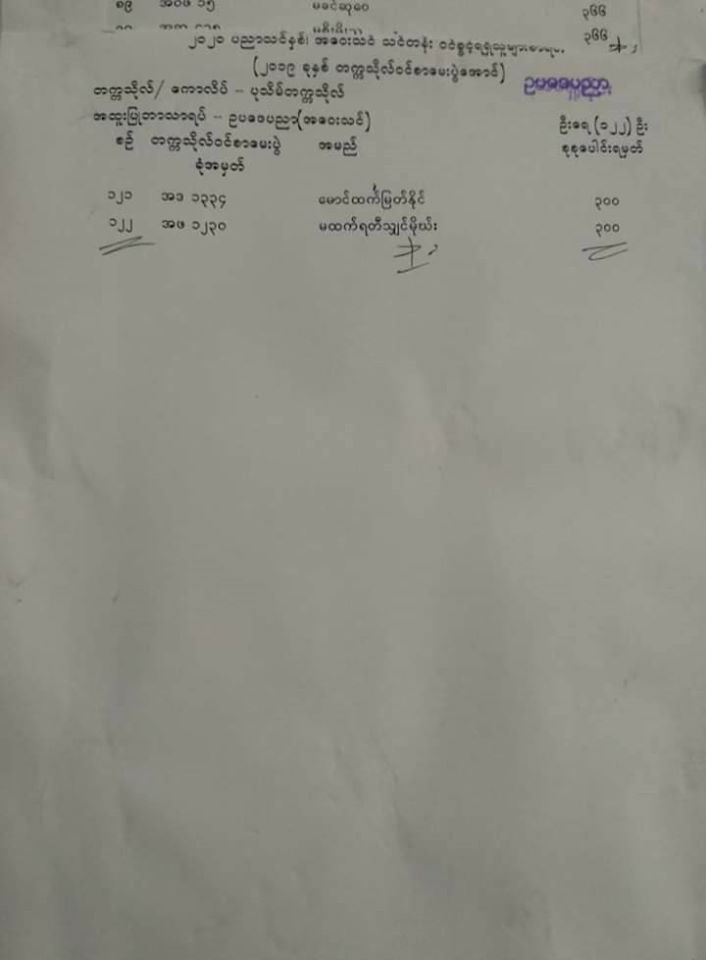 ၈၉ အဝဖ ၁၅ မခင်ဆုဝေ ၃၆၆
၃၆၆
၂၀၂၁ ပညာသင်နှစ်၊ အဝေးသင် သင်တန်း ဝင်ခွင့်ရရှိသူများစာရင်း
(၂၀၁၉ ခုနှစ် တက္ကသိုလ်ဝင်စာမေးပွဲအောင်)
ဥပဒေပညာ
တက္ကသိုလ်/ ကောလိပ် - ပုသိမ်တက္ကသိုလ်
အထူးပြုဘာသာရပ် - ဥပဒေပညာ(အဝေးသင်) ဦးရေ (၁၂၂) ဦး
စဉ် တက္ကသိုလ်ဝင်စာမေးပွဲ အမည် စုစုပေါင်းရမှတ်
ခုံအမှတ်
၁၂၁ အဒ ၁၃၃၄ မောင်ထက်မြတ်နိုင် ၃၀၀
၁၂၂ အဖ ၁၂၃၀ မထက်ရတီသျှင်မိုဃ်း ၃၀၀